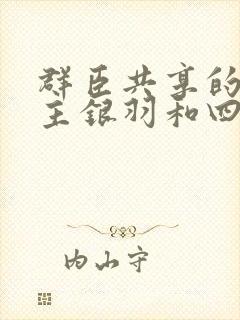 群臣共享的
主银羽和四
内山守